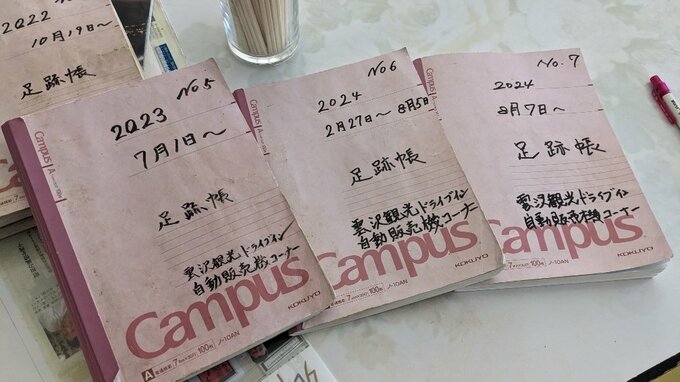 2022
10月19日〜
足跡帳
No 5
2023
7月1日〜
足跡帳
雲沢観光ドライブイン
自動販売機コーナー
Campus
KOKUYO
A 普通横罫 7mm×30行 100枚 ノ-10AN
Campus
No 6
2024
2月27日〜8月5日
足跡帳
雲沢観光ドライブイン
自動販売機コーナー
Campus
KOKUYO
7mm×30行 100枚 ノ-10AN
Campus
No.7
2024
8月7日〜
足跡帳
雲沢観光ドライブイン
自動販売機コーナー
Campus
KOKUYO
Campus